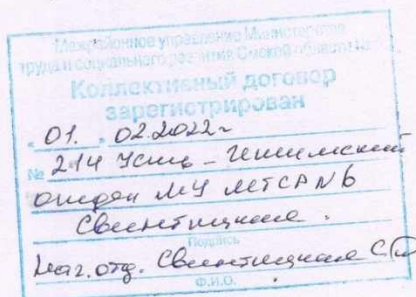 Межрайонное управление Министерства
труда и социального развития Омской области №
Коллективный договор
зарегистрирован
" 01. " 02.2022г
№ 214 Усть-Ишимский
отдел МУ МТСР №6
Свентицкая.
Подпись
Нач. отд. Свентицкая С.
Ф.И.О.